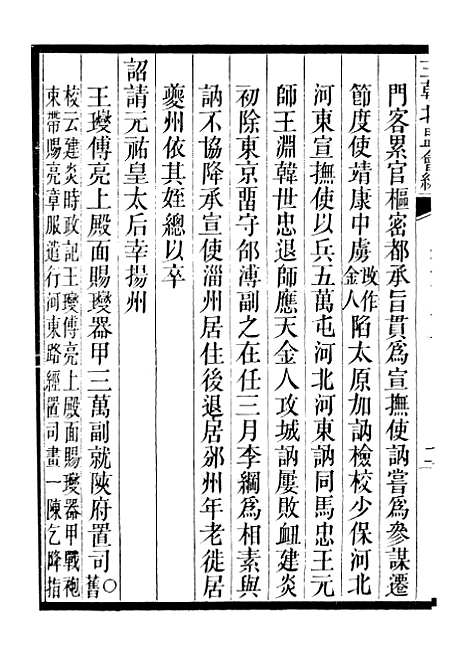 三朝北盟會編
門客累官樞密都承旨貫爲宣撫使訥嘗爲參謀遷
節度使靖康中虜改作金人陷太原加訥檢校少保河北
河東宣撫使以兵五萬屯河北河東訥同馬忠王元
師王淵韓世忠退師應天金人攻城訥屢敗衂建炎
初除東京畱守郤溥副之在任三月李綱爲相素與
訥不協降承宣使淄州居住後退居郊州年老徙居
夔州依其姪總以卒
詔請元祐皇太后幸揚州
王𤫉傅亮上殿面賜𤫉器甲三萬副就陝府置司〇舊
校云建炎時政記王𤫉傅亮上殿面賜𤫉器甲戰袍
束帶賜亮章服造行河東路經置司畫一陳乞降指